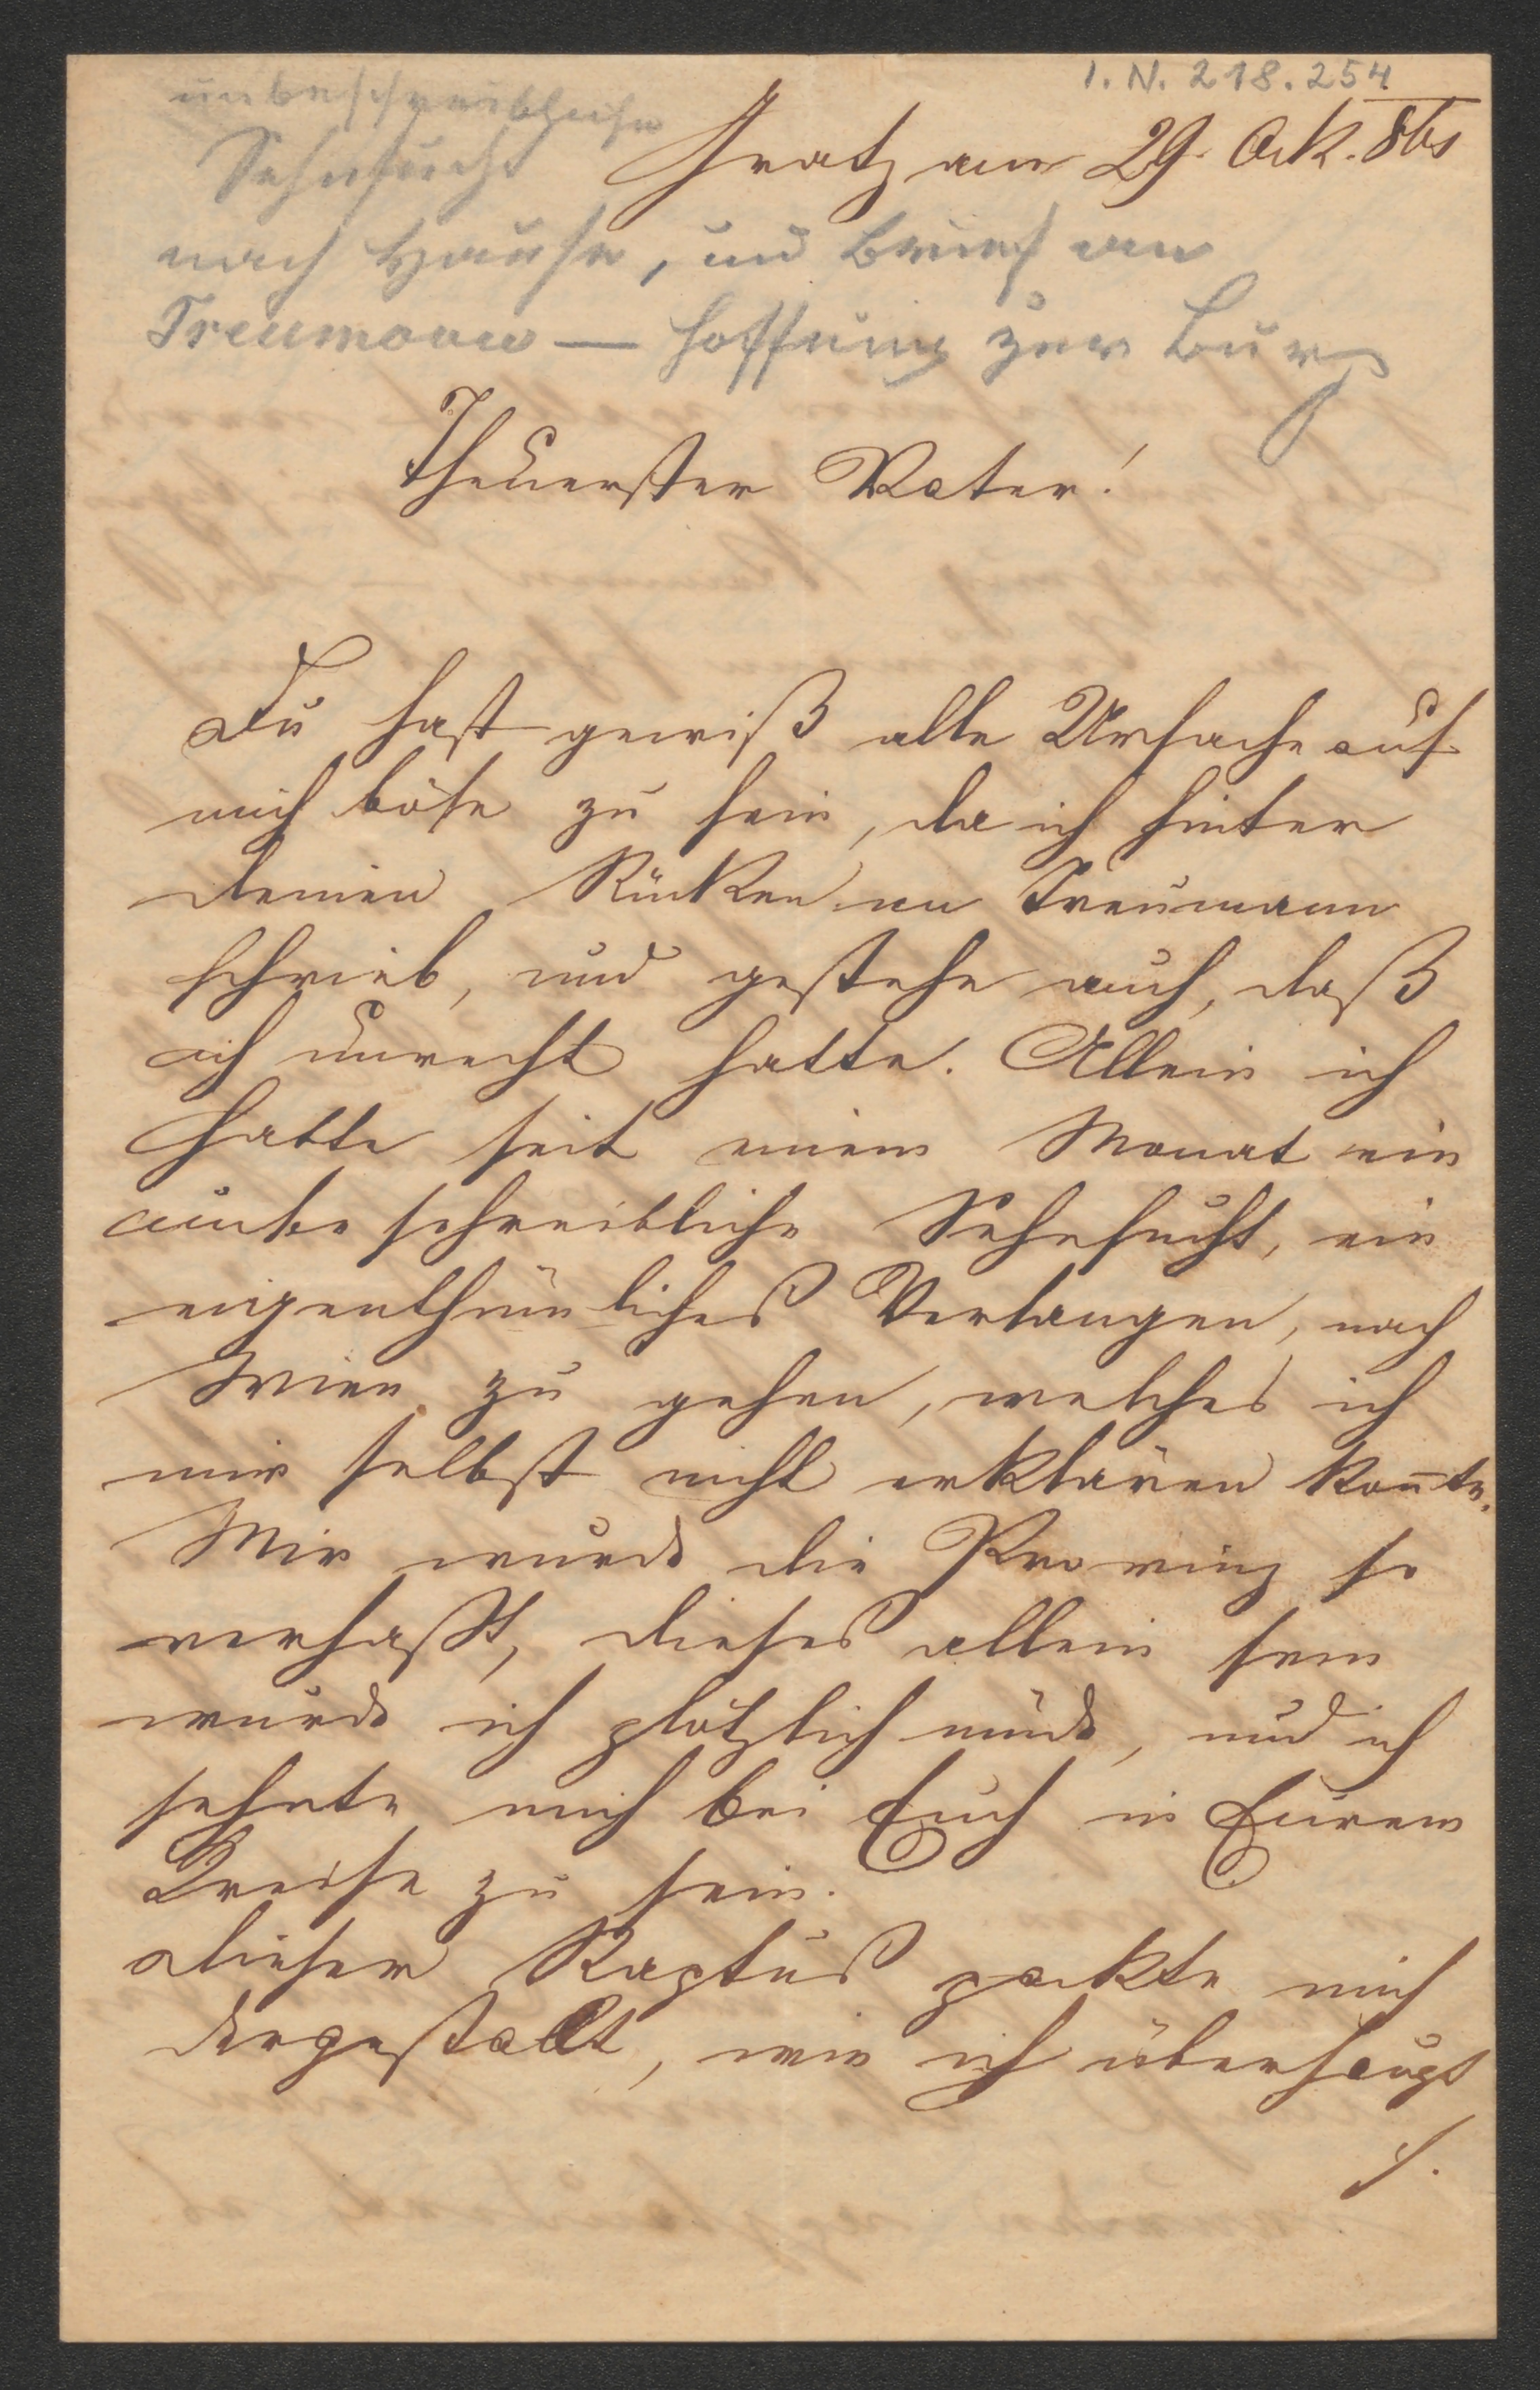 I. N. 218.254
unbeschreibliche
Sehnsucht
Gratz am 29. Okt.
nach Hause, und Brief an
Treumann — Hoffnung zur Burg
Theuerster Vater!
Du hast gewiß alle Ursache auf
mich böse zu sein, da ich hinter
deinen Rücken an Treumann
schrieb, und gestehe auch, daß
ich unrecht hatte. Allein ich
hatte seit einem Monat ein
unbeschreibliche Sehnsucht, ein
eigenthümliches Verlangen, nach
Wien zu gehen, welches ich
mir selbst nicht erklären kon̅te.
Mir wurde die Provinz so
verhaßt, dieses allein sein
wurde ich plötzlich müde, und ich
sehnte mich bei Euch in Eurem
Kreise zu sein.
Dieser Raptus packte mich
dergestalt, wie ich überhaupt